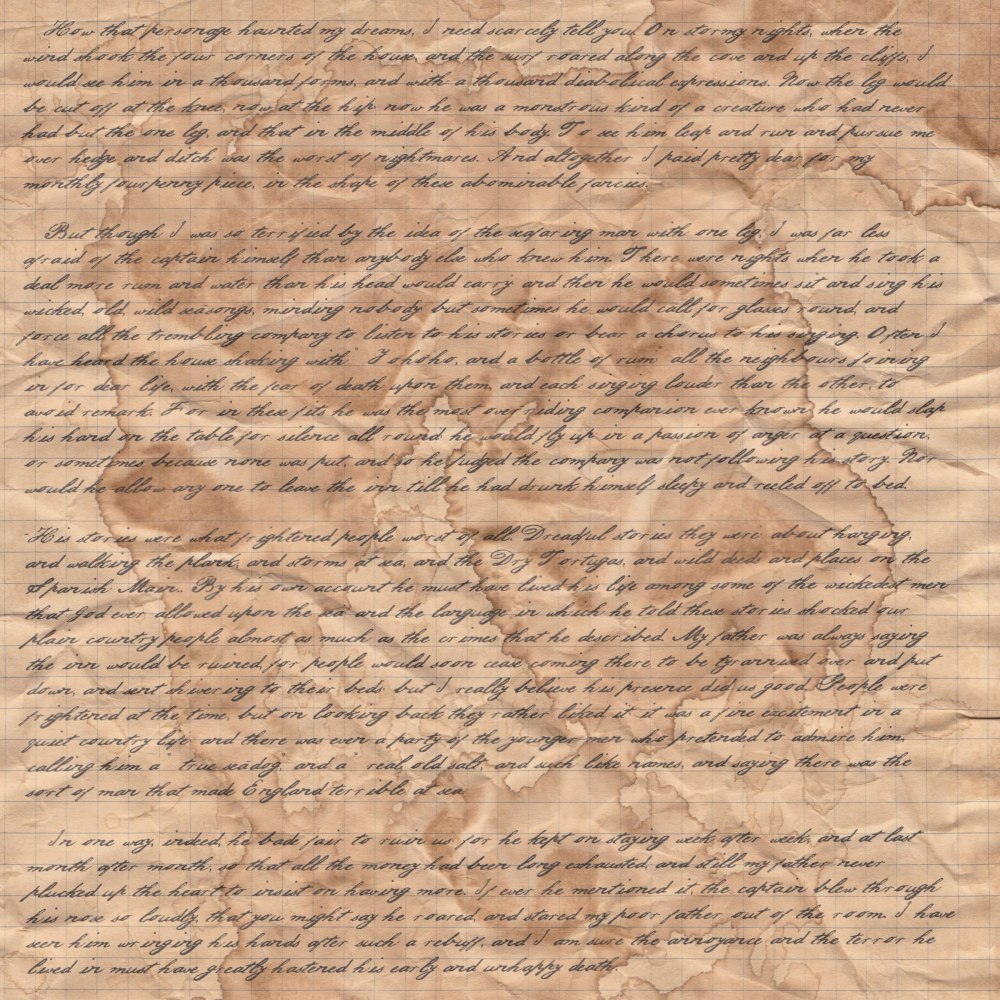 How that personage haunted my dreams, I need scarcely tell you. On stormy nights, when the
wind shook the four corners of the house, and the surf roared along the cove and up the cliffs, I
would see him in a thousand forms, and with a thousand diabolical expressions. Now the leg would
be cut off at the knee, now at the hip now he was a monstrous kind of a creature who had never
had but the one leg, and that in the middle of his body. To see him leap and run and pursue me
over hedge and ditch was the worst of nightmares. And altogether I paid pretty dear for my
monthly fourpenny piece, in the shape of these abominable fancies.
But though I was so terrified by the idea of the seafaring man with one leg, I was far less
afraid of the captain himself than anybody else who knew him. There were nights when he took a
deal more rum and water than his head would carry and then he would sometimes sit and sing his
wicked, old, wild seasongs, minding nobody but sometimes he would call for glasses round, and
force all the trembling company to listen to his stories or bear a chorus to his singing. Often I
have heard the house shaking with " Yohoho, and a bottle of rum" all the neighbours joining
in for dear life, with the fear of death upon them, and each singing louder than the other, to
avoid remark. For in these fits he was the most overriding companion ever known he would slap
his hand on the table for silence all round he would fly up in a passion of anger at a question,
or sometimes because none was put, and so he judged the company was not following his story. Nor
would he allow any one to leave the inn till he had drunk himself sleepy and reeled off to bed.
His stories were what frightened people worst of all. Dreadful stories they were about hanging,
and walking the plank, and storms at sea, and the Dry Tortugas, and wild deeds and places on the
Spanish Main. By his own account he must have lived his life among some of the wickedest men
that God ever allowed upon the sea and the language in which he told these stories shocked our
plain country people almost as much as the crimes that he described. My father was always saying
the inn would be ruined, for people would soon cease coming there to be tyrannised over and put
down, and sent shivering to their beds but I really believe his presence did us good. People were
frightened at the time, but on looking back they rather liked it it was a fine excitement in a
quiet country life and there was even a party of the younger men who pretended to admire him,
calling him a " true seadog," and a " real, old salt," and such like names, and saying there was the
sort of man that made England terrible at sea.
In one way, indeed, he bade fair to ruin us for he kept on staying week after week, and at last
month after month, so that all the money had been long exhausted, and still my father never
plucked up the heart to insist on having more. If ever he mentioned it, the captain blew through
his nose so loudly, that you might say he roared, and stared my poor father out of the room. I have
seen him wringing his hands after such a rebuff, and I am sure the annoyance and the terror he
lived in must have greatly hastened his early and unhappy death.